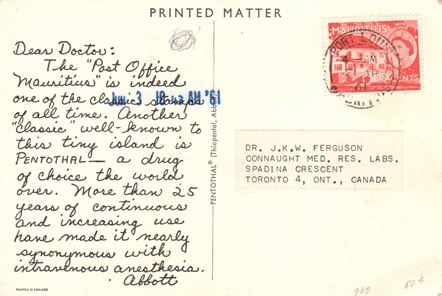 PRINTED MATTER
Dear Doctor:
The "Post Office
Mauritius" is indeed
one of the classic stamps
of all time. Another
"classic" well-known to
this tiny island is
PENTOTHAL — a drug
of choice the world
over. More than 25
years of continuous
and increasing use
have made it nearly
synonymous with
intravenous anesthesia.
Abbott
JUN 3 AM '61
PRINTED IN ENGLAND
PENTOTHAL® (Thiopental, Abbott)
MAURITIUS
PORT LOUIS
CENTS
DR. J.K.W. FERGUSON
CONNAUGHT MED. RES. LABS.
SPADINA CRESCENT
TORONTO 4, ONT., CANADA